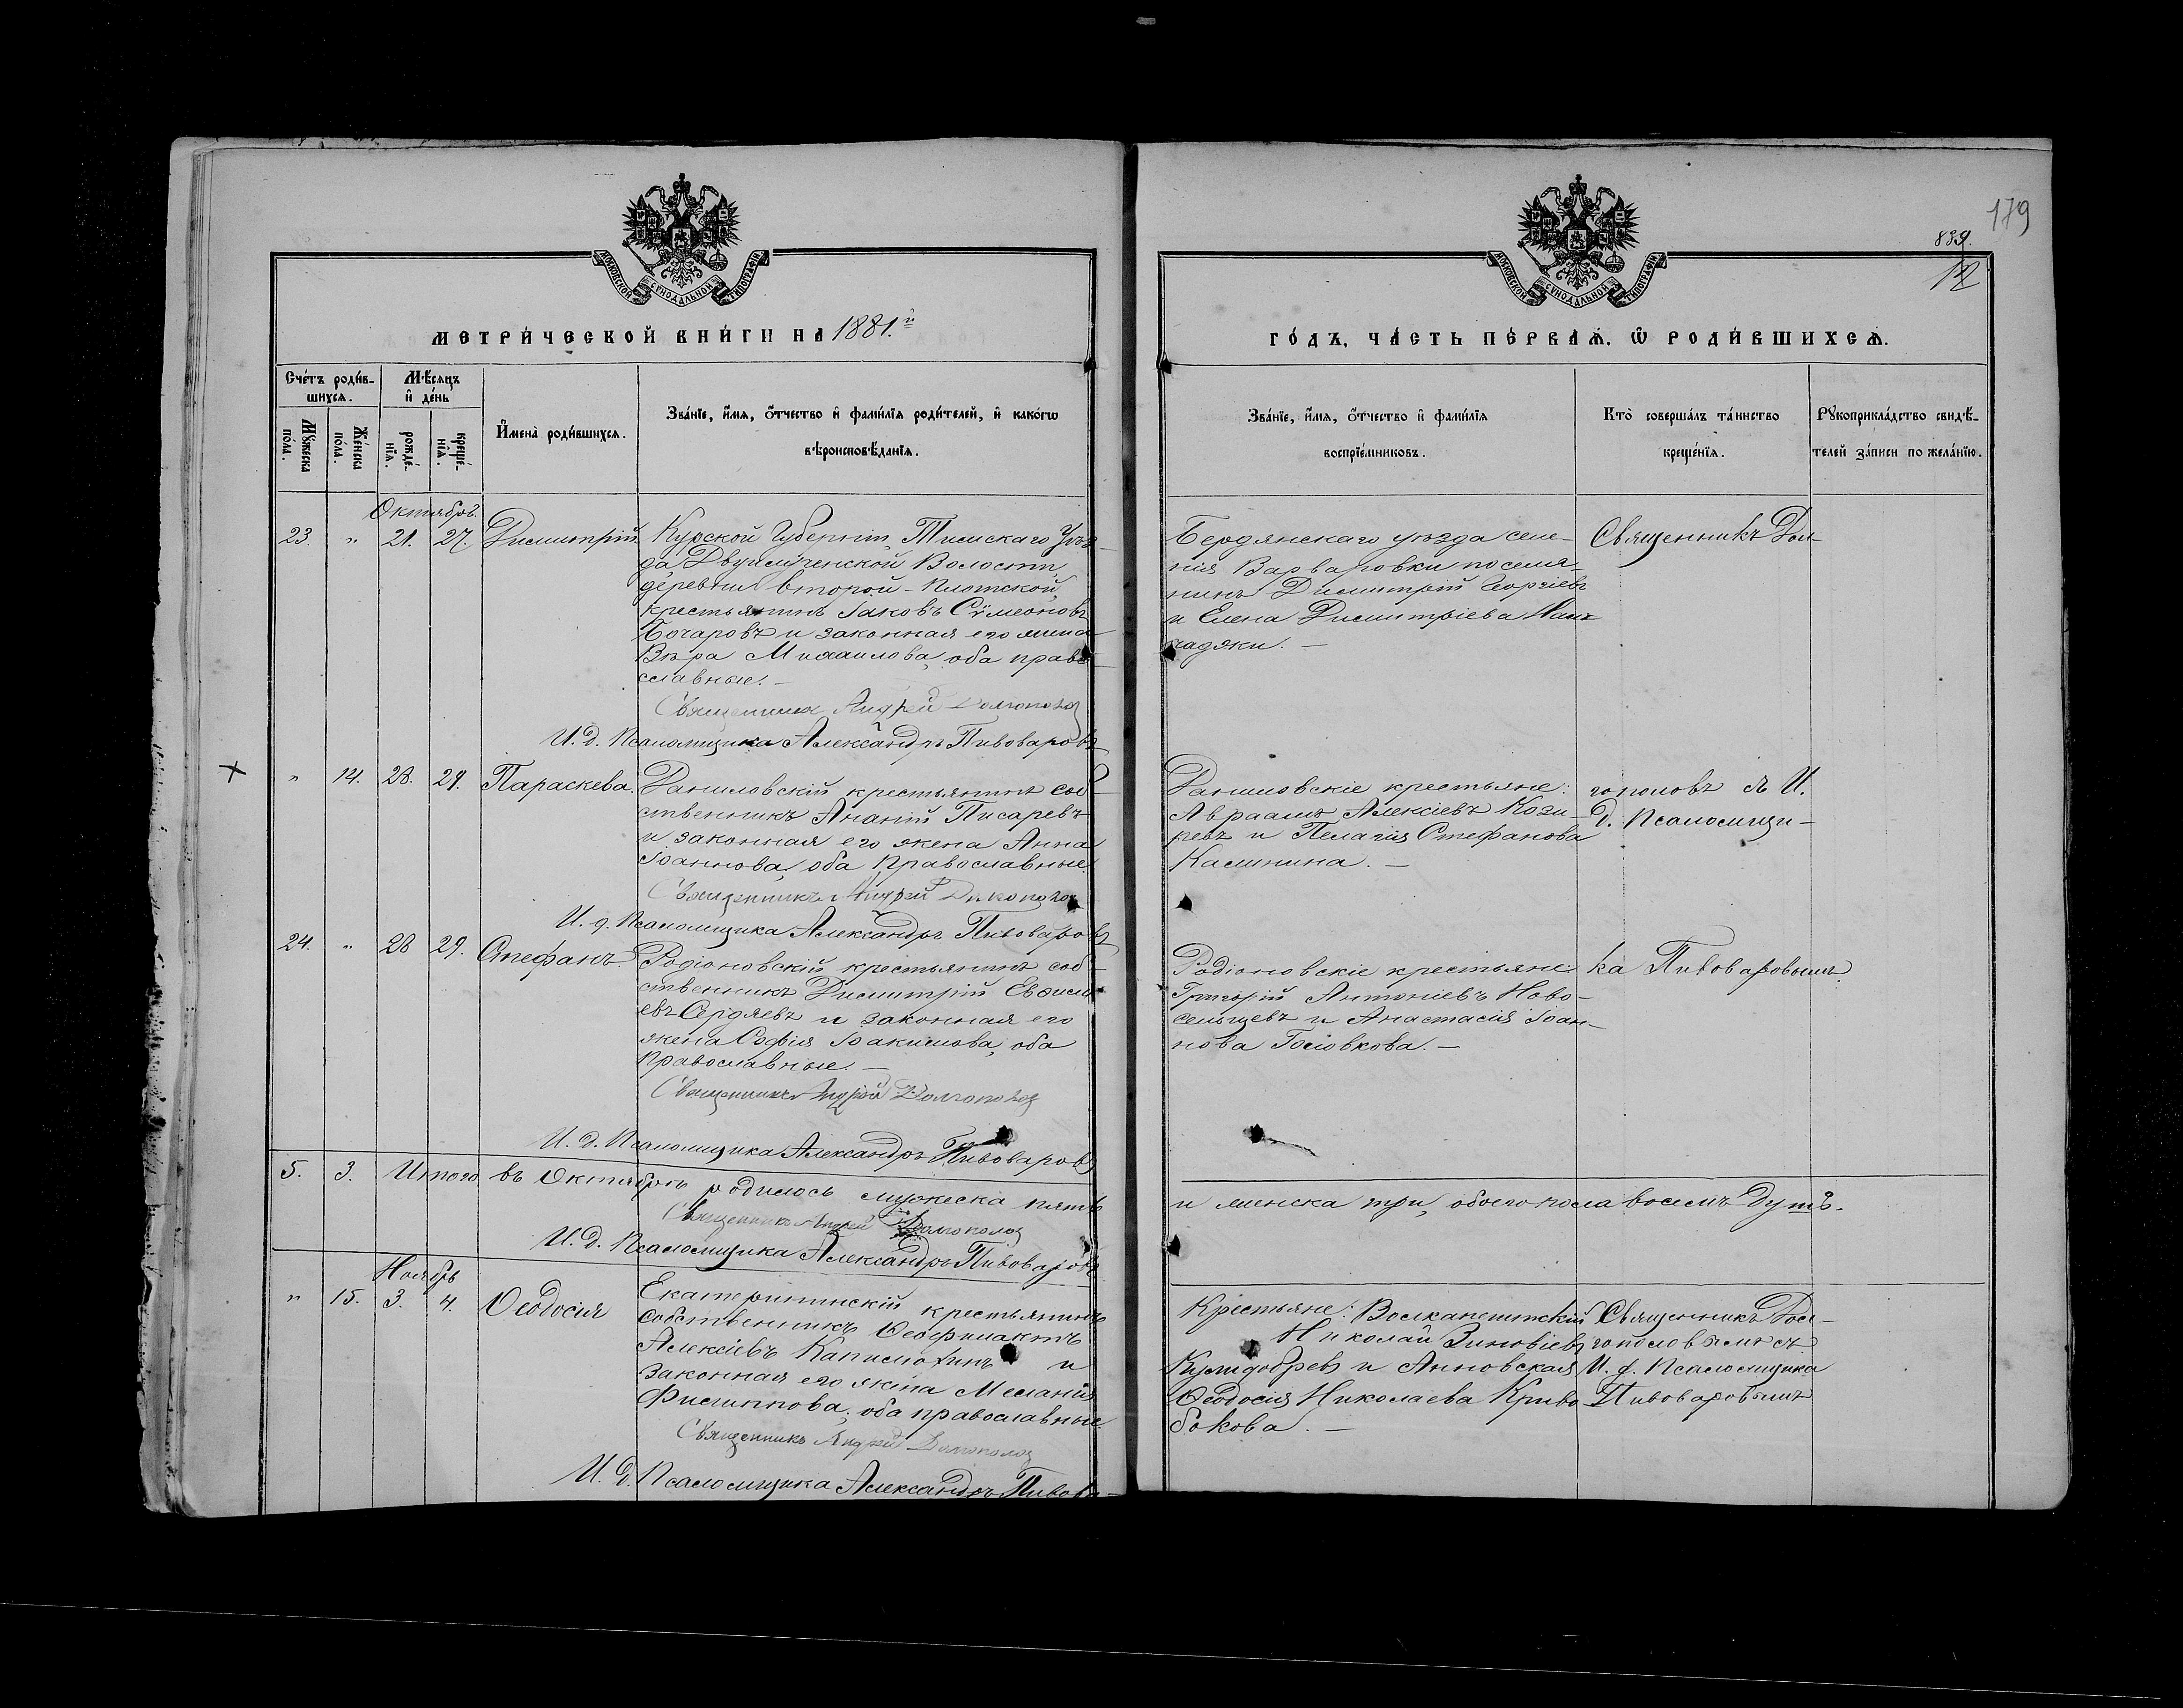 МОСКОВСКОЙ СѴНОДАЛЬНОЙ ТИПОГРАФІИ
МЕТРИ́ЧЕСКОЙ КНИ́ГИ НА 1881.й
Сче́тъ роди́в-
шихсѧ.
Мѣ́сѧцъ
и҆ де́нь
Мꙋ́жеска
по́ла.
Же́нска
по́ла.
рожде́-
нїѧ.
креще́-
нїѧ.
И҆мена̀ роди́вшихсѧ.
Зва́нїе, и҆́мѧ, ѻ҆́тчество и҆ фами́лїѧ роди́телей, и҆ како́гѡ
вѣроисповѣ́данїѧ.
Октябрь.
23. " 21. 27. Димитрій. Курской Губерніи, Тимскаго Уѣз-
да Двулученской Волости
деревни второй-Плотской,
крестьянинъ Іаковъ Сѵмеоновъ
Бочаровъ и законная его жена
Вѣра Михаилова, оба право-
славные.—
Священникъ Андрей Долгополов
И. д. Псаломщика Александръ Пивоваровъ
× " 14. 28. 29. Параскева. Даниловскій крестьянинъ соб-
ственникъ Ананій Писаревъ
и законная его жена Анна
Іоаннова, оба Православные.
Священникъ Андрей Долгополов
И. д. Псаломщика Александръ Пивоваровъ
24. " 28 29. Стефанъ. Родіоновскій крестьянинъ соб-
ственникъ Димитрій
Сердяевъ и законная его
жена Софія Іоакимова, оба
Православные.—
Священникъ Андрей Долгополов
И. д. Псаломщика Александръ Пивоваровъ
5. 3. Итого въ Октябрѣ родилось мужеска пять
Священникъ Андрей Долгополов
И. д. Псаломщика Александръ Пивоваровъ
Ноябрь
" 15. 3. 4. Ѳеодосія Екатерининскій крестьянинъ
собственникъ Ѳеофилактъ
Алексіевъ Капилюхинъ и
законная его жена Меланія
Филиппова, оба православные
Священникъ Андрей Долгополов
И. д. Псаломщика Александръ Пивова-
179
839.
12
МОСКОВСКОЙ СѴНОДАЛЬНОЙ ТИПОГРАФІИ
ГО́ДЪ, ЧА́СТЬ ПЕ́РВАѦ, Ѡ҆ РОДИ́ВШИХСѦ.
Зва́нїе, и҆́мѧ, ѻ҆́тчество и҆ фами́лїѧ
воспрїе́мниковъ.
Кто̀ соверша́лъ та́инство
креще́нїѧ.
Рꙋкоприкла́дство свидѣ́-
телей за́писи по жела́нїю.
Бердянскаго уѣзда селе-
нія Варваровки поселя-
нинъ Димитрій Георгіевъ
и Елена Димитріева
Священникъ Дол-
Даниловскіе крестьяне:
Авраамъ Алексіевъ Кози-
ревъ и Пелагія Стефанова
Калинина.—
гополовъ съ И.
д. Псаломщи-
Родіоновскіе крестьяне:
Григорій Антоніевъ Ново-
сельцевъ и Анастасія Іоан-
нова Головкова.—
ка Пивоваровымъ.
и женска три, обоего пола восемь душъ.
Крестьяне: Волканештскій
Николай Зиновіевъ
и Анновская
Ѳеодосія Николаева Криво-
бокова.—
Священникъ Дол-
гополовымъ съ
И. д. Псаломщика
Пивоваровымъ